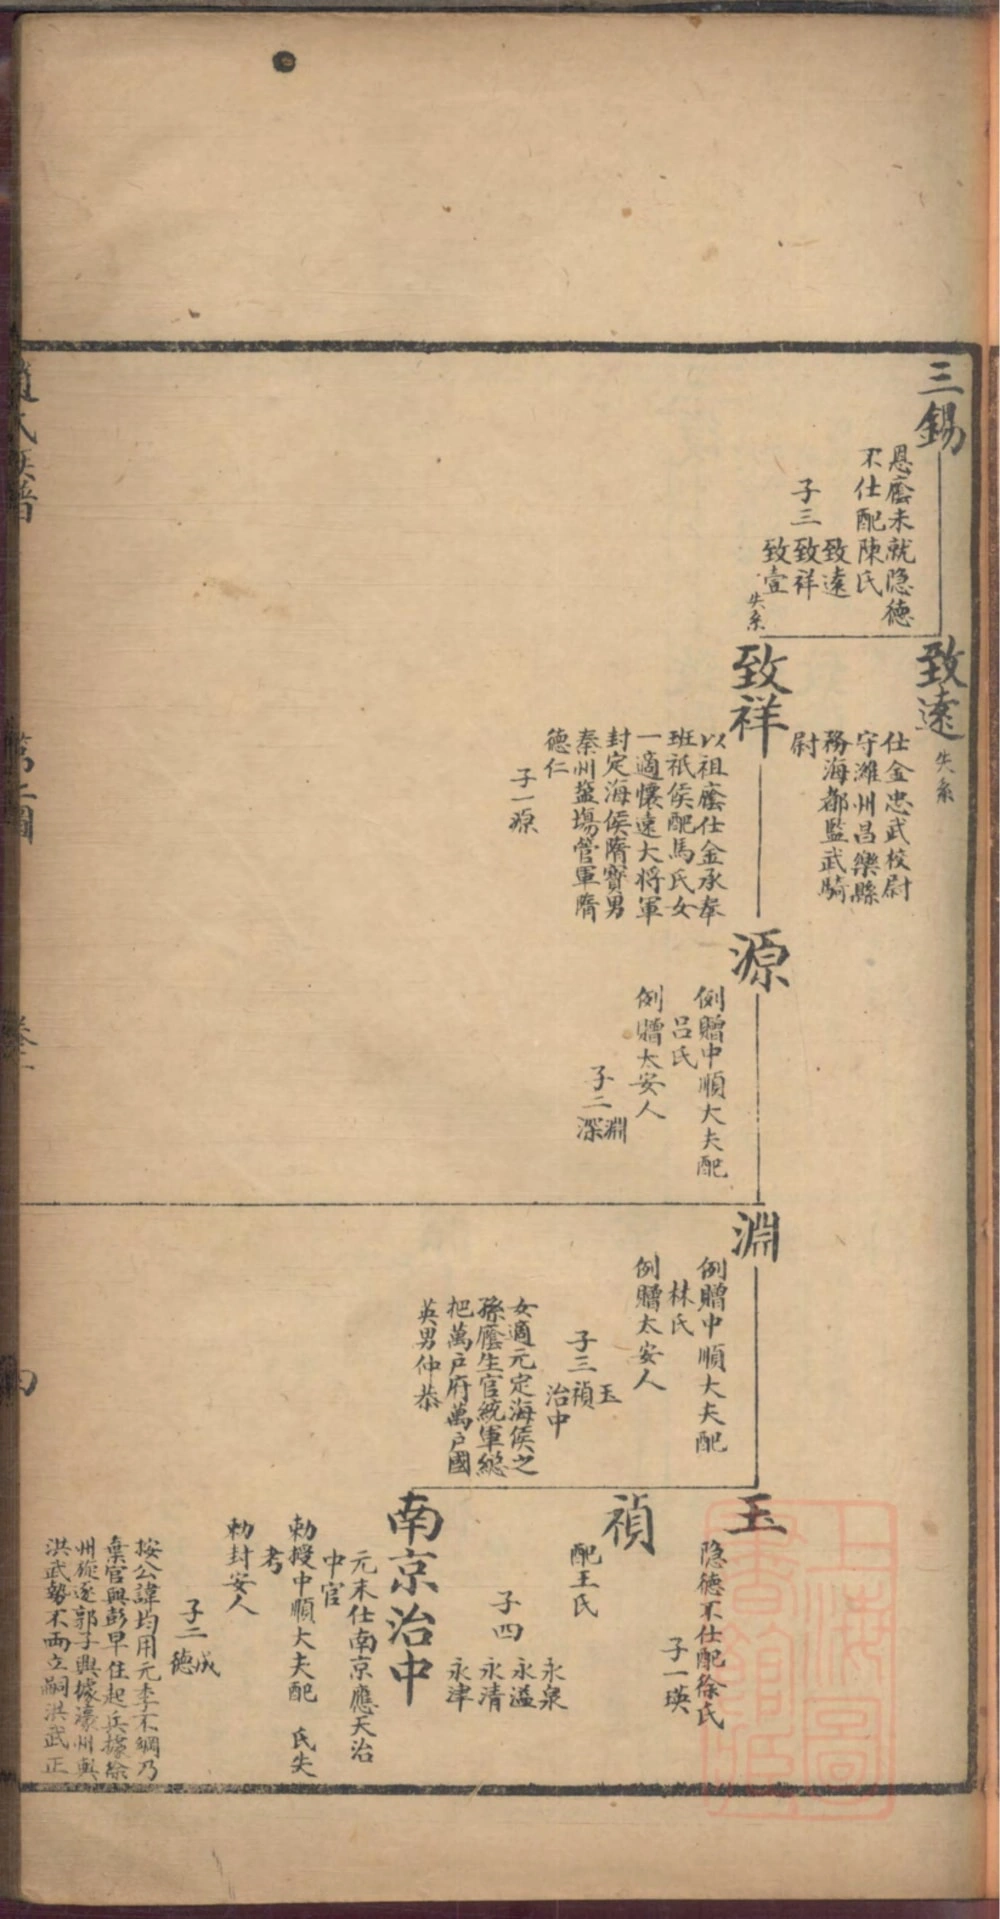 三錫
恩廕未就隐德
不仕配陳氏
子三
致遠
致祥
致壹
失系
致遠
失系
仕金忠武校尉
守濰州昌樂縣
務海都監武騎
尉
致祥
以祖廕仕金承奉
班祇侯配馬氏女
一適懷遠大将軍
封定海侯隋寳男
秦州盐場管軍隋
德仁
子一源
源
例贈中順大夫配
吕氏
例贈太安人
子二
淵
深
淵
例贈中順大夫配
林氏
例贈太安人
子三
玉
禎
治中
女適元定海侯之
孫廕生官統軍總
把萬户府萬户國
英男仲恭
玉
隐德不仕配徐氏
子一瑛
禎
配王氏
子四
永泉
永溢
永清
永津
南京治中
元末仕南京應天治
中官
勅授中順大夫配 氏失
考
勅封安人
子二
成
德
按公諱均用元季不綱乃
棄官與彭早住起兵據徐
州旋逐郭子興據濠州與
洪武勢不両立嗣洪武正
趙氏族譜
卷二
四
上海圖書館藏